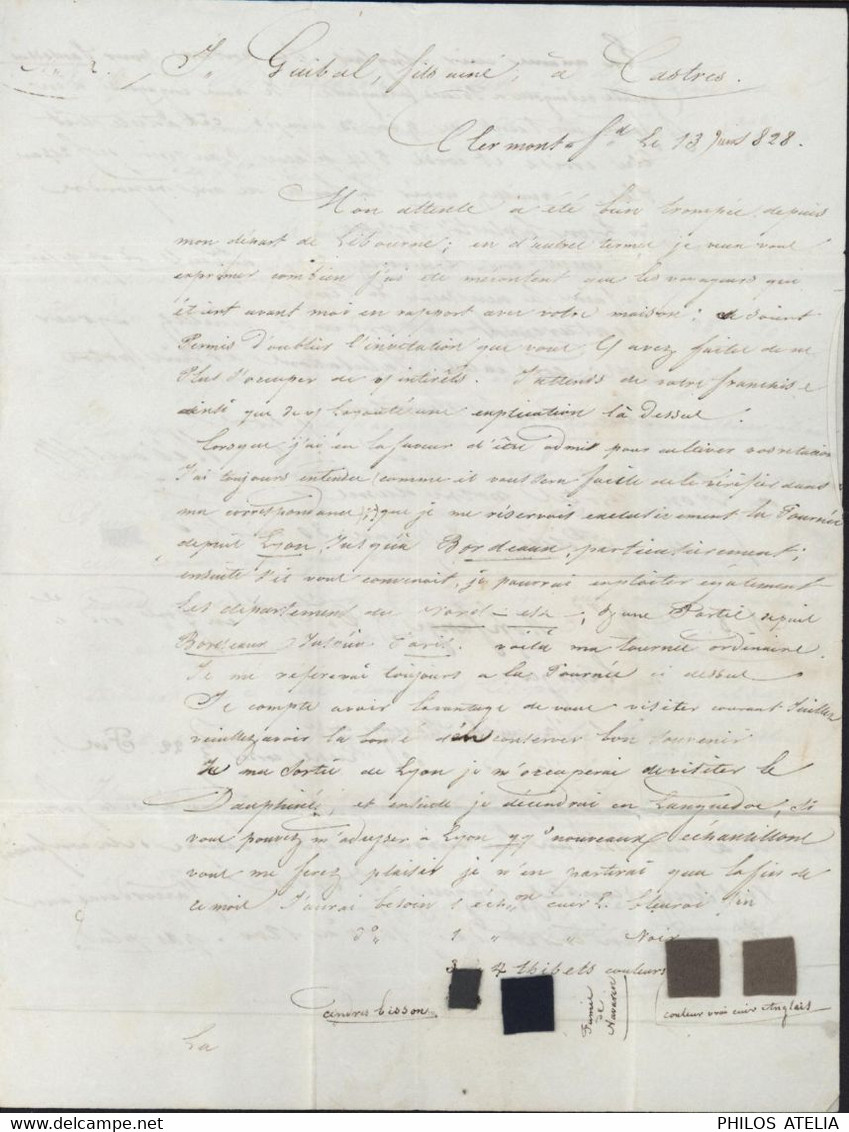 J. Guibal, fils ainé, à Castres.
Clermont-fd Le 13 Juin 828.
Mon attente a été bien trompée depuis
mon départ de Libourne; en d'autres termes je veux vous
exprimer combien j'ai été mécontent que les voyageurs qui
étient avant moi en rapport avec votre maison; se soient
Permis d'oublier l'invitation que vous Y avez faite de ne
Plus s'occuper de vs interêts. J'attends de votre franchise
ainsi que de vs Loyauté une explication là dessus.
Lorsque j'ai eu la faveur d'être admis pour cultiver vos relations
J'ai toujours entendu (comme il vous sera facile de le vérifier dans
ma correspondance) que je me réservais exclusivement la Tournée
depuis Lyon, Jusqu'à Bordeaux, particulièrement;
ensuite s'il vous convenait, je pourrai exploiter également
Les département du nord-est, & une Partie depuis
Bordeaux Jusqu'à Paris. voilà ma tournée ordinaire.
Je me referai toujours a la Tournée ci dessus
Je compte avoir lavantage de vous visiter courant Juillet
veuillez avoir la bonté d'en conserver bon souvenir
De ma sortie de Lyon je m'occuperai de visiter le
Dauphiné, et ensuite je décendrai en Languedoc, si
vous pouvez m'adresser à Lyon qq's nouveaux échantillons
vous me ferez plaisir je n'en partirai que la fin de
ce mois J'aurai besoin 1 éch.on cuir L. bleurai fin
do 1 " " Noir
3 a 4 thibets couleurs
cendre bisson
Fumée de Navarin
couleur vrai cuir Anglais
La
PHILOS ATELIA